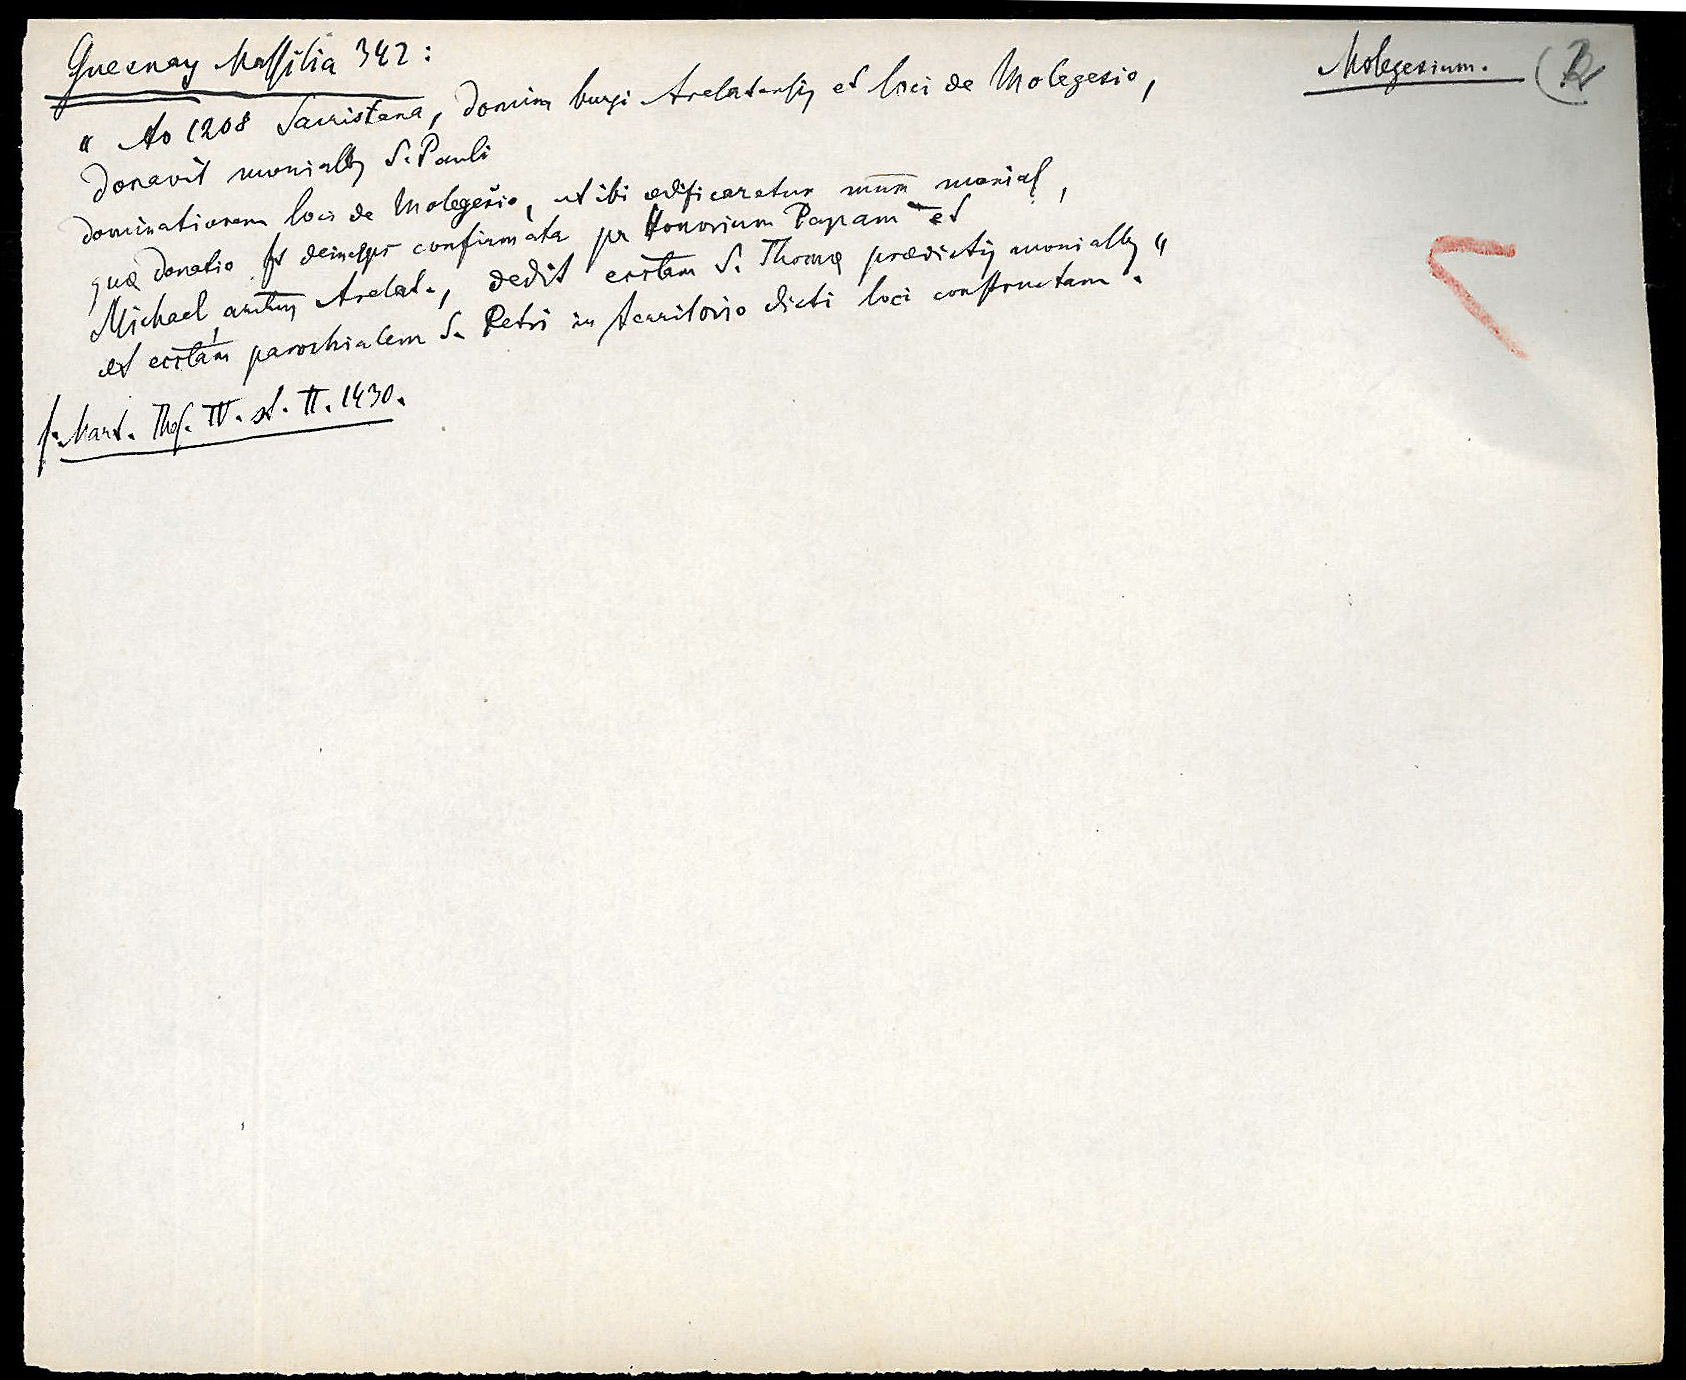 Guesnay Massilia 342:
Molegesium. (R
" Ao 1208 Sacristana, domina burgi Arelatensis et loci de Molegesio,
donavit monialbs S. Pauli
dominationem loci de Molegesio, ut ibi ædificaretur mnm monial,
quæ donatio ft deinceps confirmata pr Honorium Papam et
Michael, archus Arelat., dedit ecclam S. Thomæ prædictis monialbs "
et ecclam parochialem S. Petri in territorio dicti loci constructam.
f. Mart. Thes. IV. st. II. 1430.